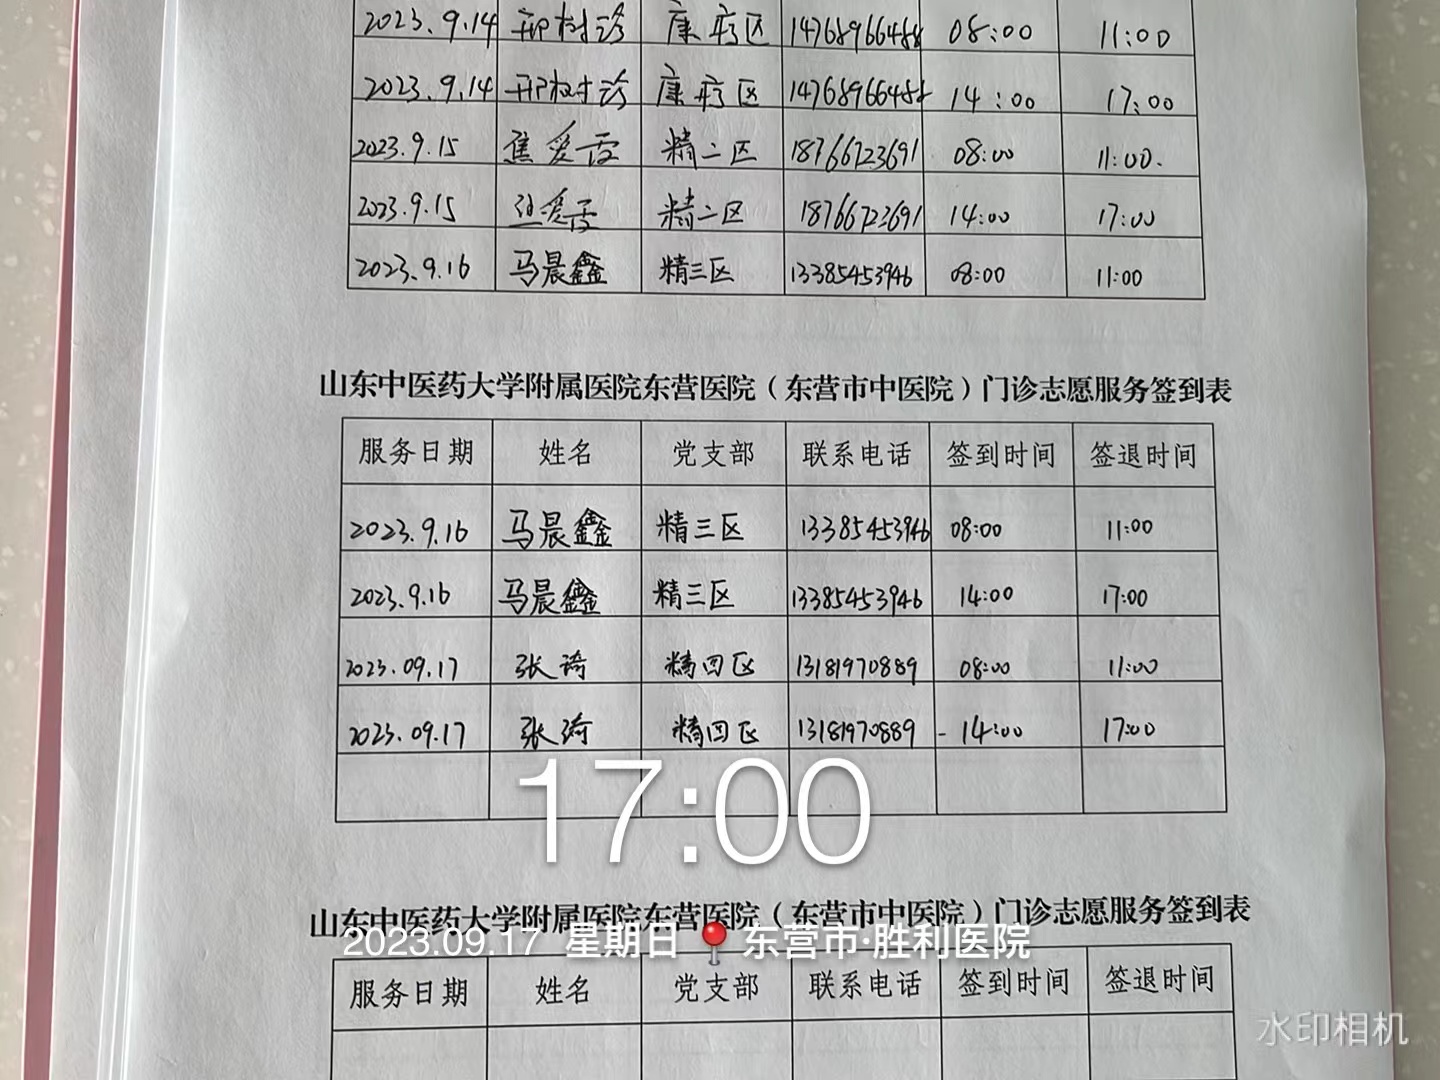 2023.9.14 邢树珍 康疗区 14768966488 08:00 11:00
2023.9.14 邢树珍 康疗区 14768966488 14:00 17:00
2023.9.15 焦爱霞 精二区 18766723691 08:00 11:00.
2023.9.15 焦爱霞 精二区 18766723691 14:00 17:00
2023.9.16 马晨鑫 精三区 13385453946 08:00 11:00
山东中医药大学附属医院东营医院（东营市中医院）门诊志愿服务签到表
服务日期 姓名 党支部 联系电话 签到时间 签退时间
2023.9.16 马晨鑫 精三区 13385453946 08:00 11:00
2023.9.16 马晨鑫 精三区 13385453946 14:00 17:00
2023.09.17 张琦 精四区 13181970889 08:00 11:00
2023.09.17 张琦 精四区 13181970889 - 14:00 17:00
17:00
山东中医药大学附属医院东营医院（东营市中医院）门诊志愿服务签到表
2023.09.17 星期日 东营市·胜利医院
服务日期 姓名 党支部 联系电话 签到时间 签退时间
水印相机